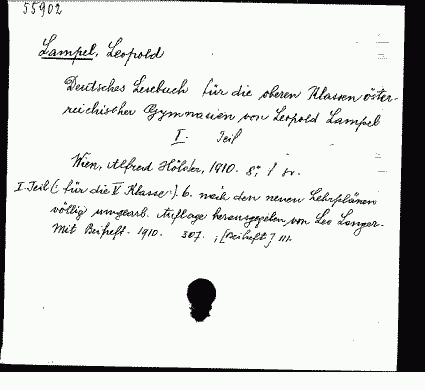 55902
Lampel, Leopold
Deutsches Lesebuch für die oberen Klassen öster-
reichischer Gymnasien von Leopold Lampel
I. Teil
Wien, Alfred Hölder, 1910. 8°, 1 v.
I. Teil (: für die V. Klasse :). 6. nach den neuen Lehrplänen
völlig umgearb. Auflage herausgegeben von Leo Langer.
Mit Beiheft. 1910. 307. ; [Beiheft] III.